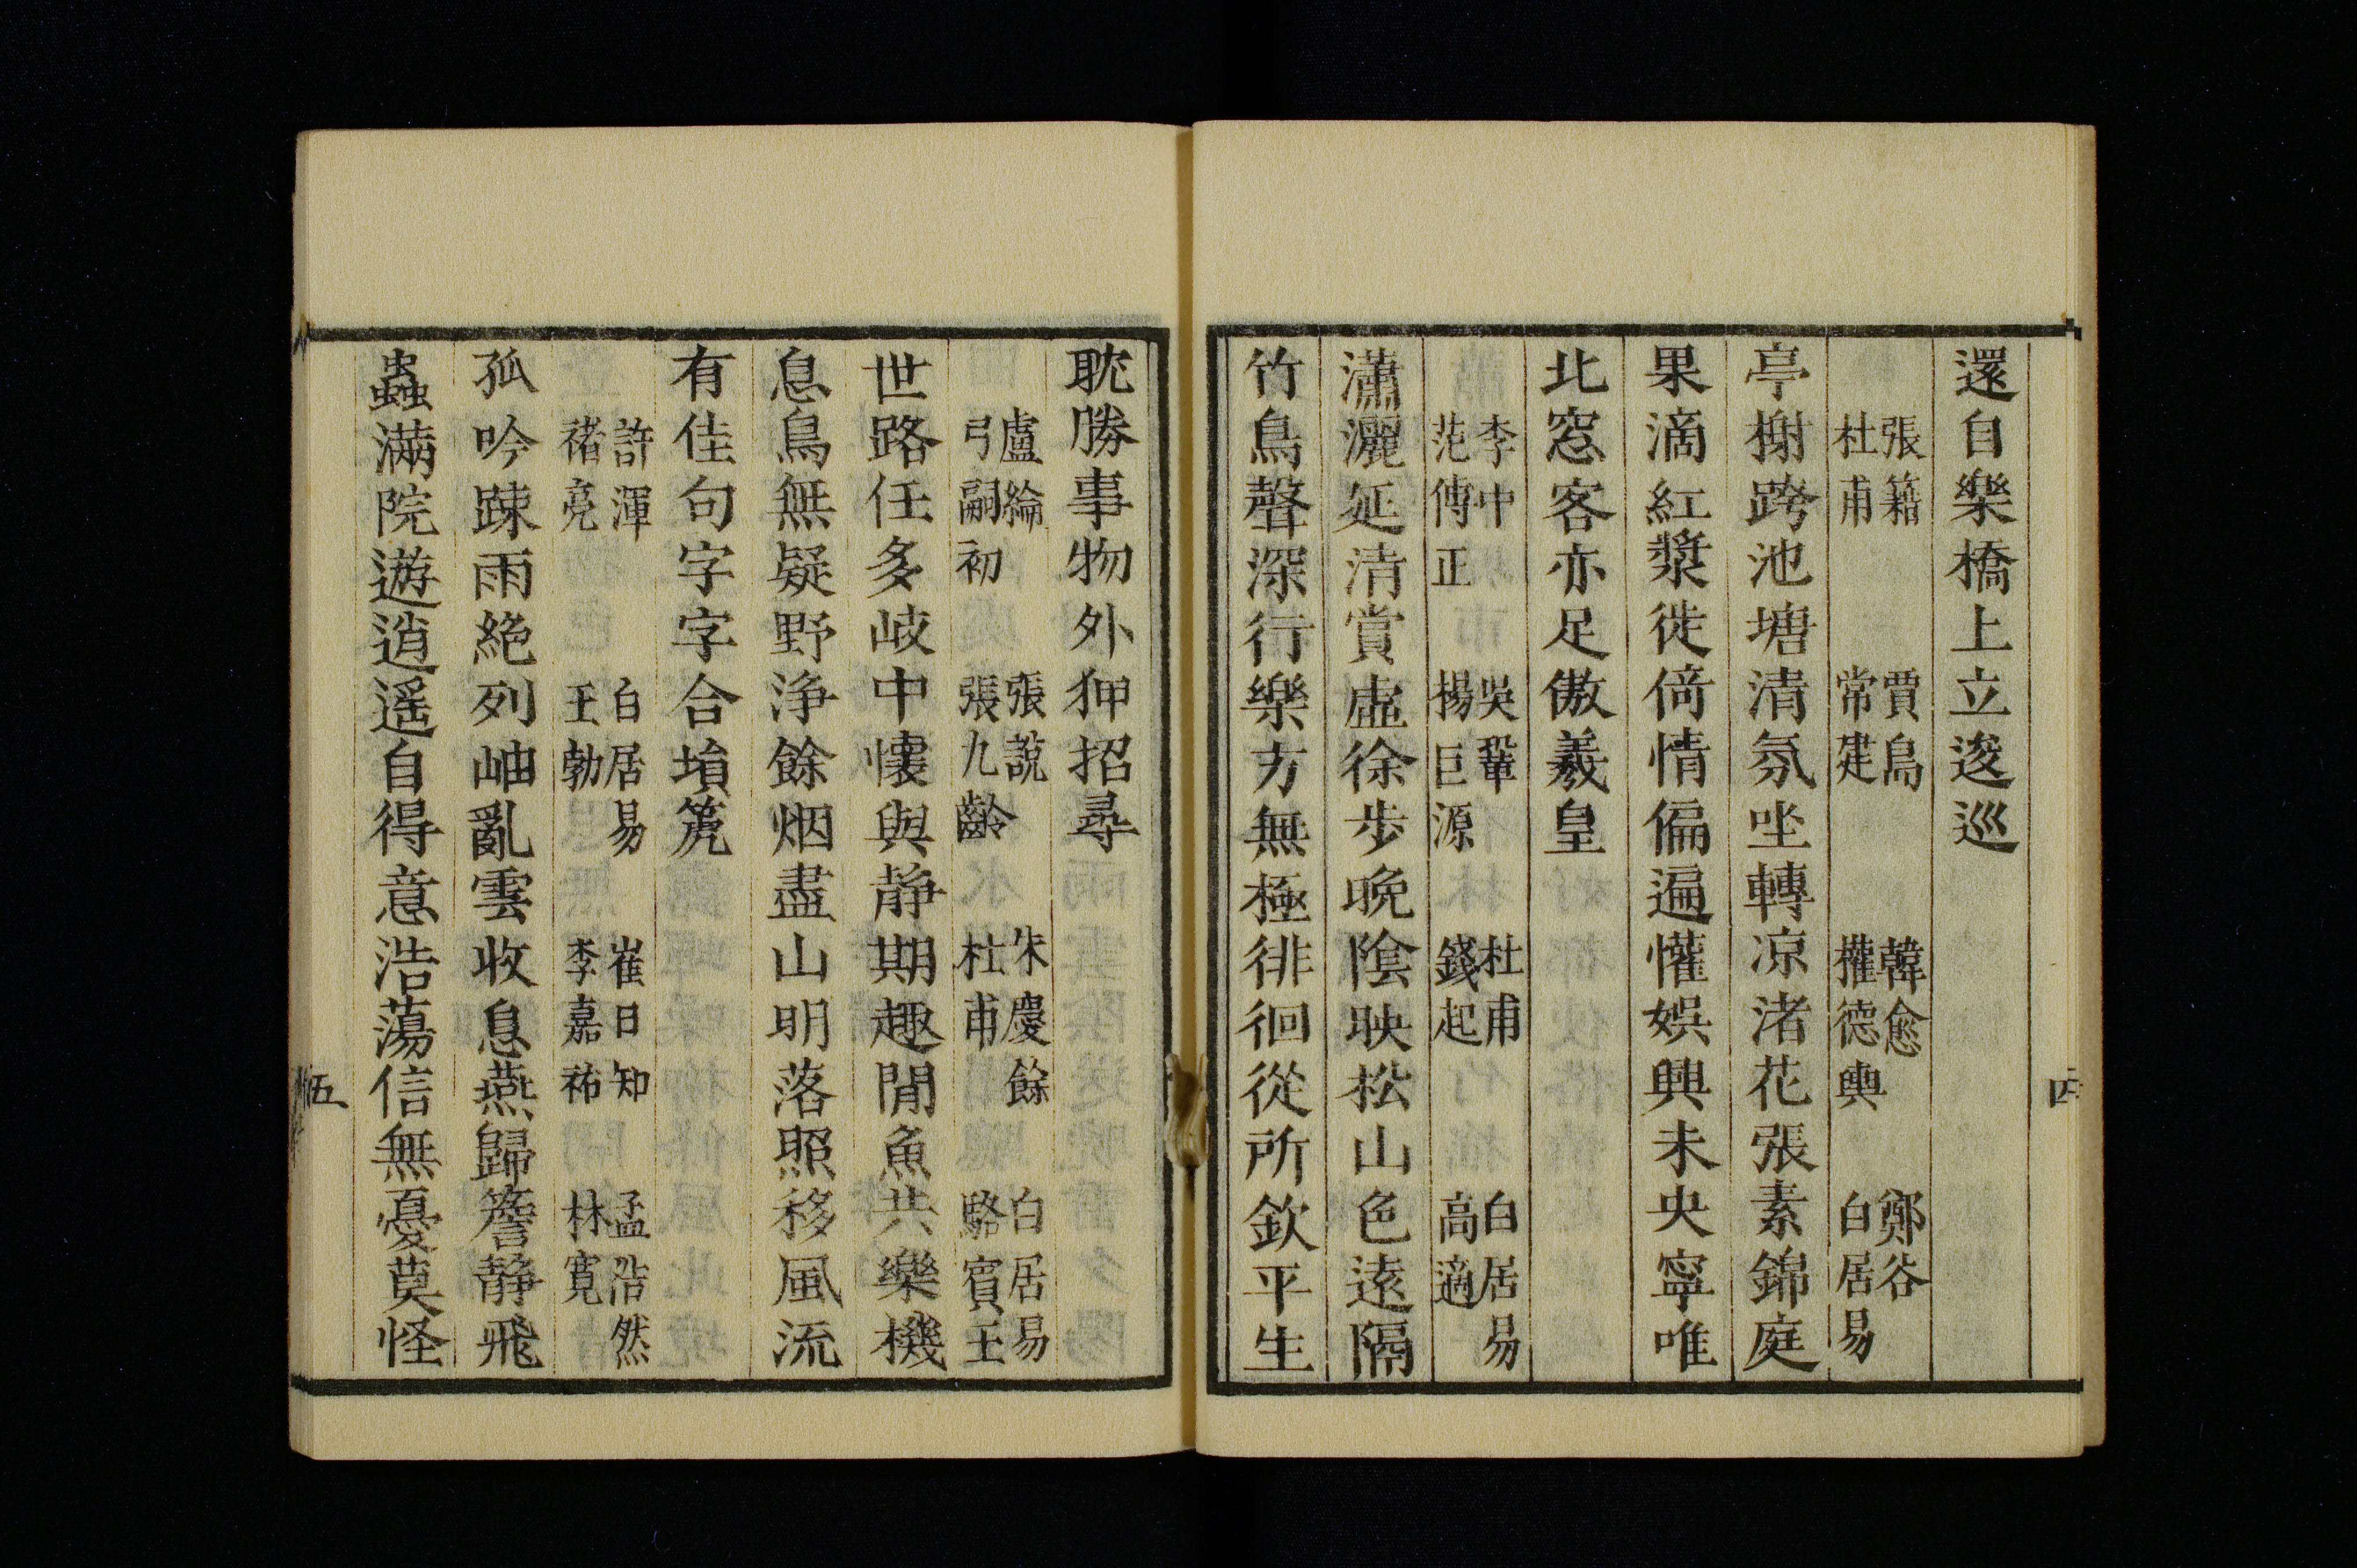 還自樂橋上立逡巡
張籍 賈島 韓愈 鄭谷
杜甫 常建 權德輿 白居易
亭榭跨池塘清氛坐轉凉渚花張素錦庭
果滴紅漿徙倚情偏遍懽娛興未央寧唯
北窓客亦足傲羲皇
李中 吳鞏 杜甫 白居易
范傳正 楊巨源 錢起 高適
瀟灑延清賞虛徐步晩陰映松山色遠隔
竹鳥聲深行樂方無極徘徊從所欽平生
四
耽勝事物外狎招尋
盧綸 張説 朱慶餘 白居易
弓嗣初 張九齡 杜甫 駱賓王
世路任多岐中懷與静期趣閒魚共樂機
息鳥無疑野浄餘烟盡山明落照移風流
有佳句字字合塤箎
許渾 白居易 崔日知 孟浩然
褚亮 王勃 李嘉祐 林寛
孤吟踈雨絶列岫亂雲收息燕歸簷静飛
蟲滿院遊逍遥自得意浩蕩信無憂莫怪
五